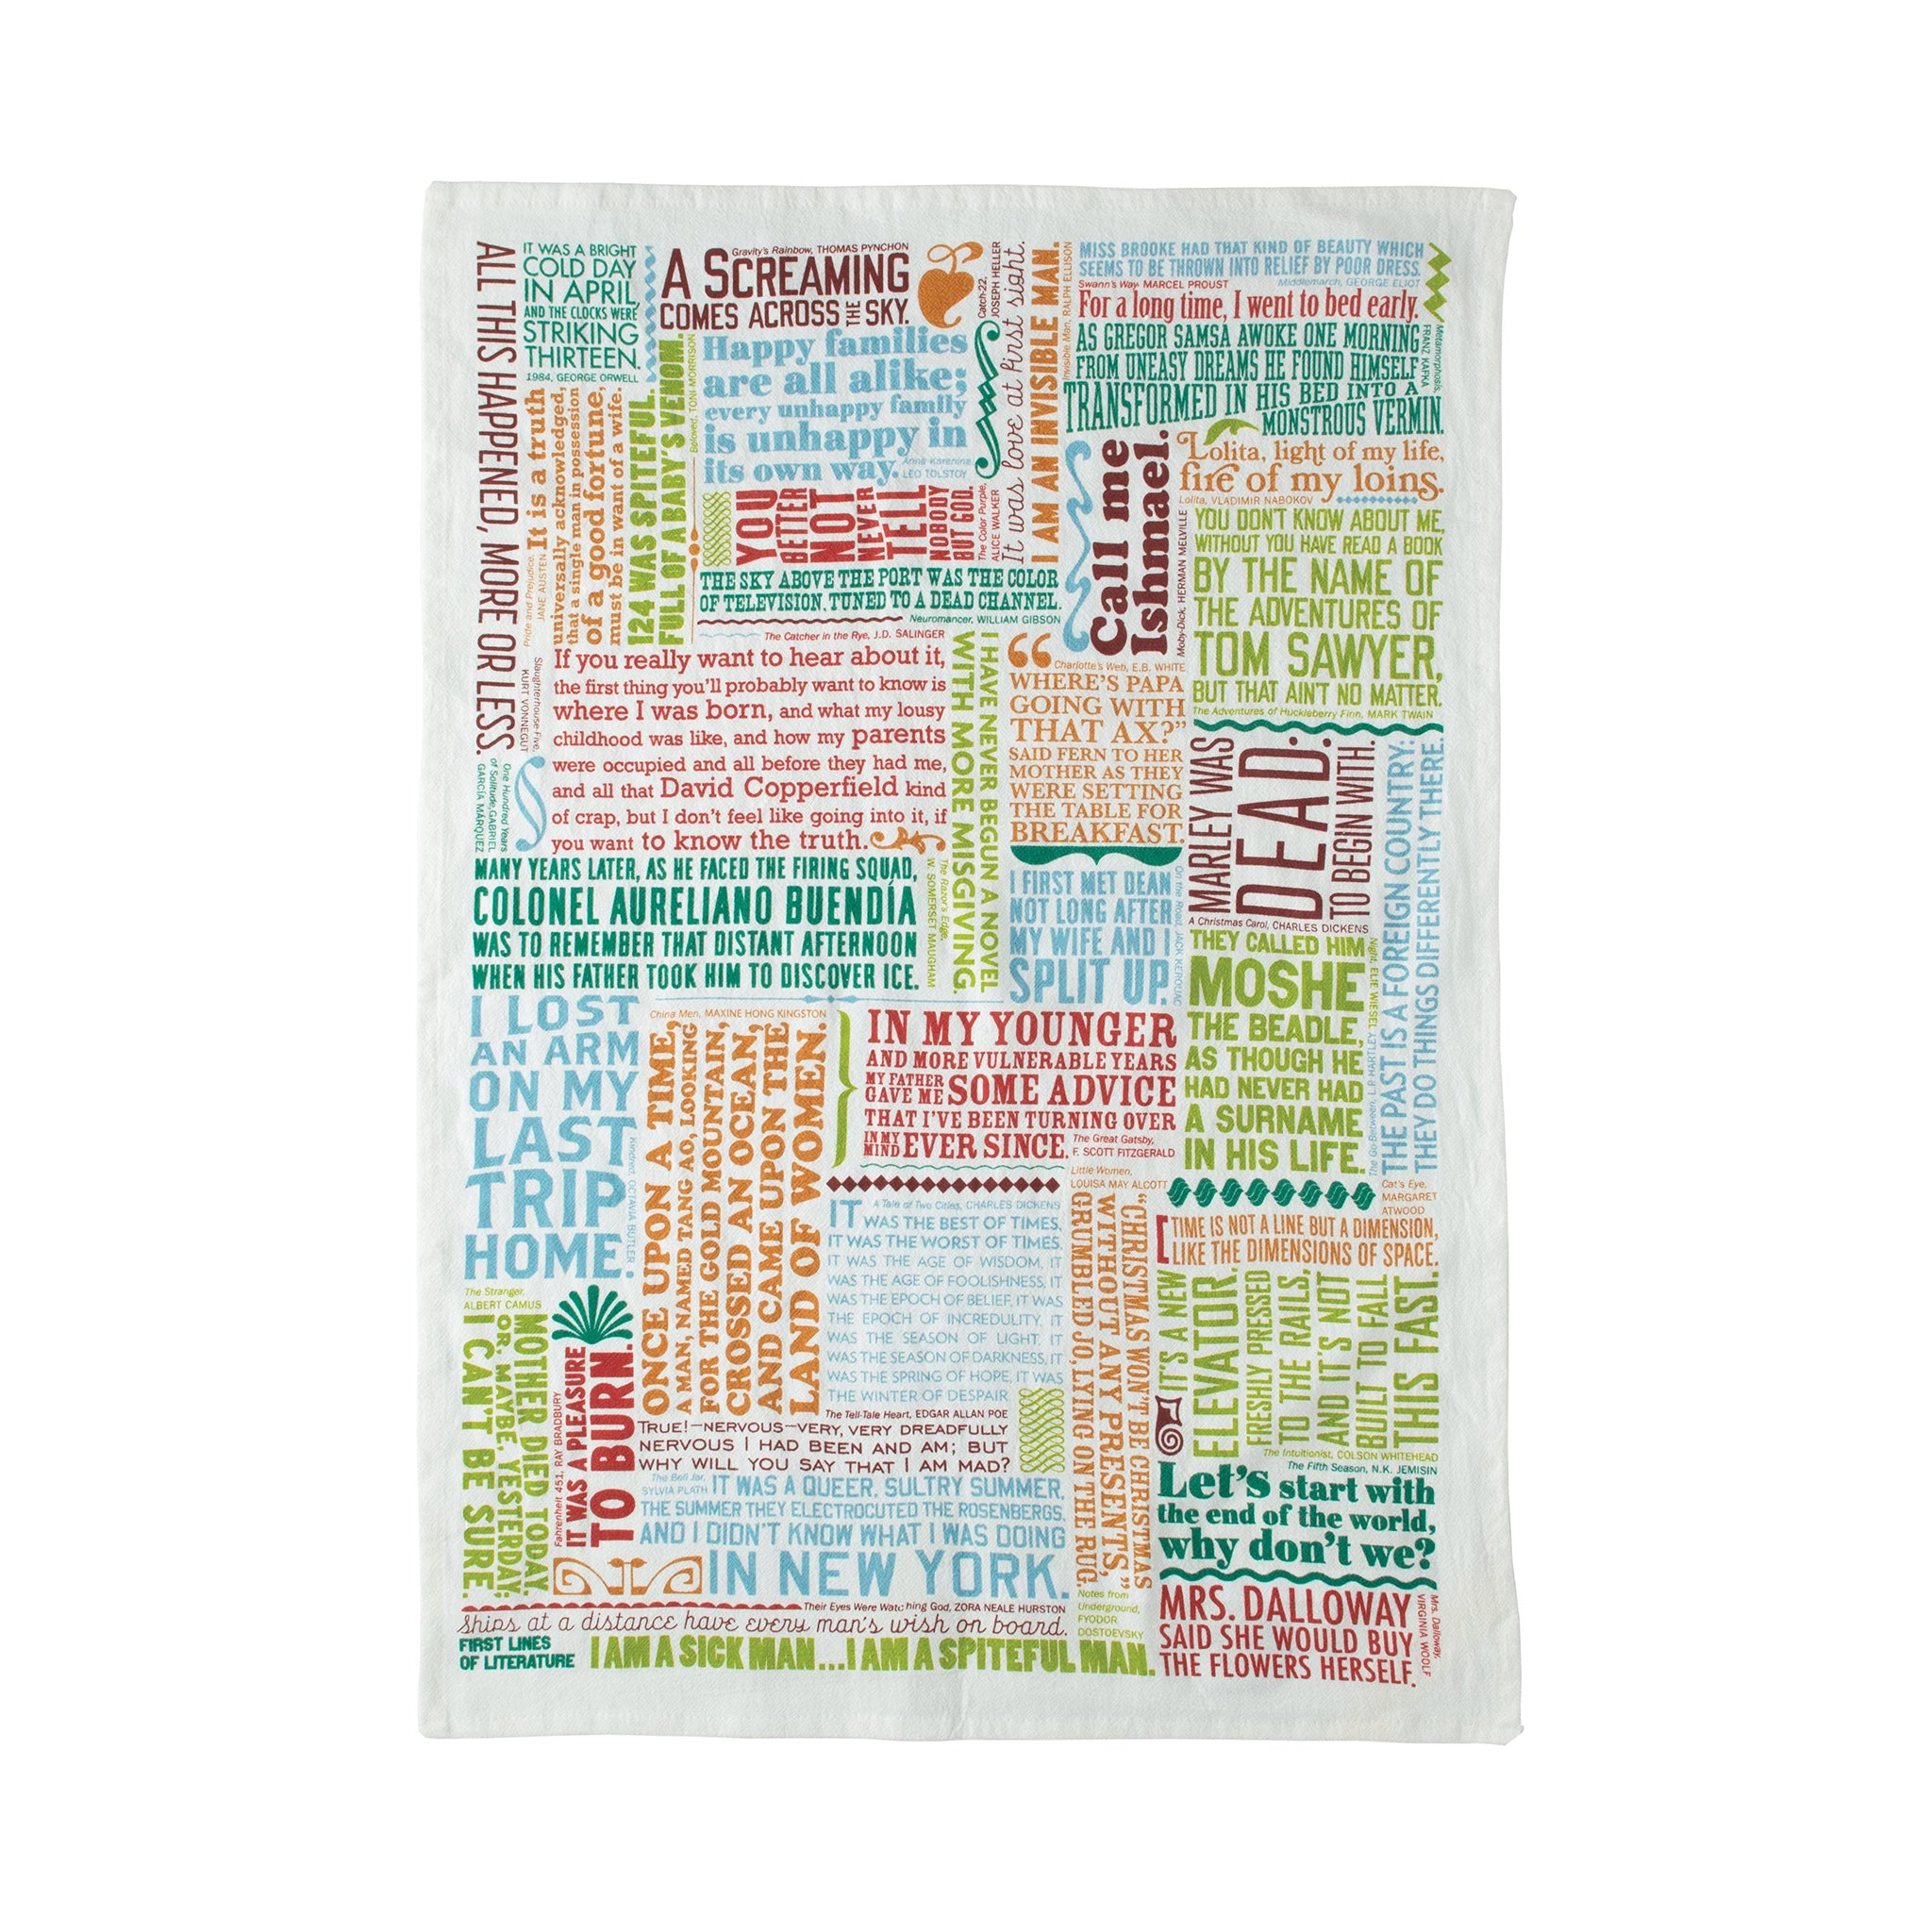 ALL THIS HAPPENED, MORE OR LESS.
Slaughterhouse-Five,
KURT VONNEGUT
IT WAS A BRIGHT
COLD DAY
IN APRIL,
AND THE CLOCKS WERE
STRIKING
THIRTEEN.
1984, GEORGE ORWELL
Gravity's Rainbow, THOMAS PYNCHON
A SCREAMING
COMES ACROSS THE SKY.
Catch-22,
JOSEPH HELLER
It was love at first sight.
I AM AN INVISIBLE MAN.
Invisible Man, RALPH ELLISON
MISS BROOKE HAD THAT KIND OF BEAUTY WHICH
SEEMS TO BE THROWN INTO RELIEF BY POOR DRESS.
Middlemarch, GEORGE ELIOT
Swann's Way, MARCEL PROUST
For a long time, I went to bed early.
AS GREGOR SAMSA AWOKE ONE MORNING
FROM UNEASY DREAMS HE FOUND HIMSELF
TRANSFORMED IN HIS BED INTO A
MONSTROUS VERMIN.
Metamorphosis,
FRANZ KAFKA
Pride and Prejudice,
JANE AUSTEN
It is a truth
universally acknowledged,
that a single man in possession
of a good fortune,
must be in want of a wife.
124 WAS SPITEFUL.
FULL OF A BABY'S VENOM.
Beloved, TONI MORRISON
Happy families
are all alike;
every unhappy family
is unhappy in
its own way.
Anna Karenina
LEO TOLSTOY
YOU
BETTER
NOT
NEVER
TELL
NOBODY
BUT GOD.
The Color Purple,
ALICE WALKER
THE SKY ABOVE THE PORT WAS THE COLOR
OF TELEVISION, TUNED TO A DEAD CHANNEL.
Neuromancer, WILLIAM GIBSON
Call me
Ishmael.
Moby-Dick, HERMAN MELVILLE
Lolita, light of my life,
fire of my loins.
Lolita, VLADIMIR NABOKOV
YOU DON'T KNOW ABOUT ME,
WITHOUT YOU HAVE READ A BOOK
BY THE NAME OF
THE ADVENTURES OF
TOM SAWYER,
BUT THAT AIN'T NO MATTER.
The Adventures of Huckleberry Finn, MARK TWAIN
The Catcher in the Rye, J.D. SALINGER
If you really want to hear about it,
the first thing you'll probably want to know is
where I was born, and what my lousy
childhood was like, and how my parents
were occupied and all before they had me,
and all that David Copperfield kind
of crap, but I don't feel like going into it, if
you want to know the truth.
I HAVE NEVER BEGUN A NOVEL
WITH MORE MISGIVING.
The Razor's Edge,
W. SOMERSET MAUGHAM
Charlotte's Web, E.B. WHITE
“
WHERE'S PAPA
GOING WITH
THAT AX?”
SAID FERN TO HER
MOTHER AS THEY
WERE SETTING
THE TABLE FOR
BREAKFAST.
MARLEY WAS
DEAD:
TO BEGIN WITH.
A Christmas Carol, CHARLES DICKENS
THE PAST IS A FOREIGN COUNTRY:
THEY DO THINGS DIFFERENTLY THERE.
The Go-Between, L.P. HARTLEY
One Hundred Years
of Solitude, GABRIEL
GARCÍA MÁRQUEZ
MANY YEARS LATER, AS HE FACED THE FIRING SQUAD,
COLONEL AURELIANO BUENDÍA
WAS TO REMEMBER THAT DISTANT AFTERNOON
WHEN HIS FATHER TOOK HIM TO DISCOVER ICE.
I FIRST MET DEAN
NOT LONG AFTER
MY WIFE AND I
SPLIT UP.
On the Road, JACK KEROUAC
THEY CALLED HIM
MOSHE
THE BEADLE,
AS THOUGH HE
HAD NEVER HAD
A SURNAME
IN HIS LIFE.
Night, ELIE WIESEL
I LOST
AN ARM
ON MY
LAST
TRIP
HOME.
Kindred, OCTAVIA BUTLER
China Men, MAXINE HONG KINGSTON
ONCE UPON A TIME,
A MAN, NAMED TANG AO, LOOKING
FOR THE GOLD MOUNTAIN,
CROSSED AN OCEAN,
AND CAME UPON THE
LAND OF WOMEN.
IN MY YOUNGER
AND MORE VULNERABLE YEARS
MY FATHER GAVE ME SOME ADVICE
THAT I'VE BEEN TURNING OVER
IN MY MIND EVER SINCE.
The Great Gatsby,
F. SCOTT FITZGERALD
A Tale of Two Cities, CHARLES DICKENS
IT WAS THE BEST OF TIMES,
IT WAS THE WORST OF TIMES,
IT WAS THE AGE OF WISDOM, IT
WAS THE AGE OF FOOLISHNESS, IT
WAS THE EPOCH OF BELIEF, IT WAS
THE EPOCH OF INCREDULITY, IT
WAS THE SEASON OF LIGHT, IT
WAS THE SEASON OF DARKNESS, IT
WAS THE SPRING OF HOPE, IT WAS
THE WINTER OF DESPAIR.
Little Women,
LOUISA MAY ALCOTT
“CHRISTMAS WON'T BE CHRISTMAS
WITHOUT ANY PRESENTS,”
GRUMBLED JO, LYING ON THE RUG.
Cat's Eye,
MARGARET
ATWOOD
TIME IS NOT A LINE BUT A DIMENSION,
LIKE THE DIMENSIONS OF SPACE.
IT'S A NEW
ELEVATOR,
FRESHLY PRESSED
TO THE RAILS,
AND IT'S NOT
BUILT TO FALL
THIS FAST.
The Intuitionist, COLSON WHITEHEAD
The Stranger,
ALBERT CAMUS
MOTHER DIED TODAY.
OR, MAYBE, YESTERDAY;
I CAN'T BE SURE.
Fahrenheit 451, RAY BRADBURY
IT WAS A PLEASURE
TO BURN.
The Tell-Tale Heart, EDGAR ALLAN POE
TRUE!—NERVOUS—VERY, VERY DREADFULLY
NERVOUS I HAD BEEN AND AM; BUT
WHY WILL YOU SAY THAT I AM MAD?
The Bell Jar,
SYLVIA PLATH
IT WAS A QUEER, SULTRY SUMMER,
THE SUMMER THEY ELECTROCUTED THE ROSENBERGS,
AND I DIDN'T KNOW WHAT I WAS DOING
IN NEW YORK.
The Fifth Season, N.K. JEMISIN
Let's start with
the end of the world,
why don't we?
Their Eyes Were Watching God, ZORA NEALE HURSTON
Ships at a distance have every man's wish on board.
Notes from
Underground,
FYODOR
DOSTOEVSKY
I AM A SICK MAN...I AM A SPITEFUL MAN.
MRS. DALLOWAY
SAID SHE WOULD BUY
THE FLOWERS HERSELF.
Mrs. Dalloway,
VIRGINIA WOOLF
FIRST LINES
OF LITERATURE